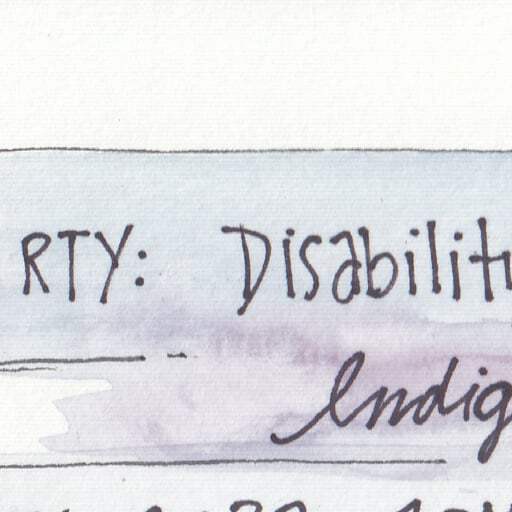 RTY: Disability
Indig